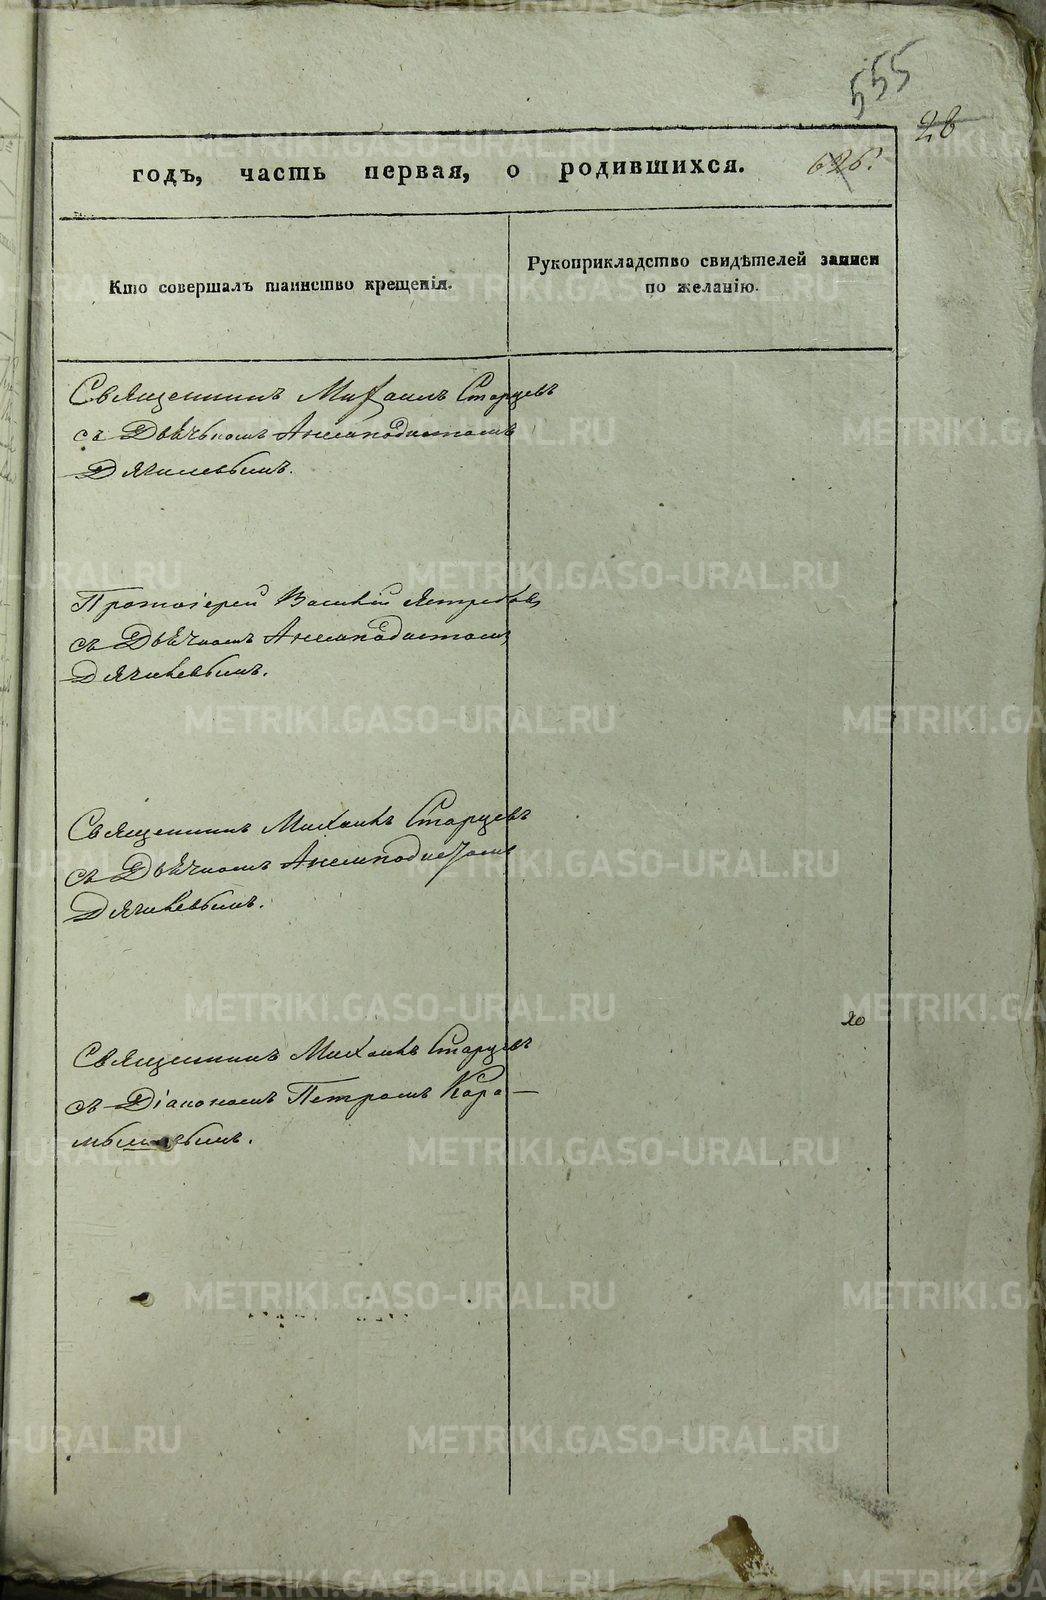 555
28
годъ, часть первая, о родившихся. 626.
Кто совершалъ таинство крещенія.
Рукоприкладство свидѣтелей записи
по желанію.
Священникъ Михаилъ Старцевъ
съ Дьячкомъ Анемподистомъ
Дягилевымъ.
Протоіерей Василій Ястребовъ
съ Дьячкомъ Анемподистомъ
Дягилевымъ.
Священникъ Михаилъ Старцевъ
съ Дьячкомъ Анемподистомъ
Дягилевымъ.
20
Священникъ Михаилъ Старцевъ
съ Діакономъ Петромъ Кара-
мышевымъ.
METRIKI.GASO-URAL.RU